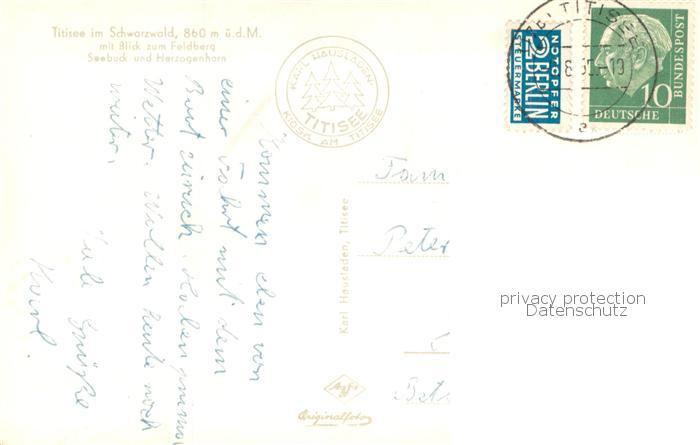 Titisee im Schwarzwald, 860 m ü.d.M.
mit Blick zum Feldberg
Seebuck und Herzogenhorn
KARL HAUSLADEN
TITISEE
KIOSK AM TITISEE
Kommen eben von
einer Fahrt mit dem
Boot zurück. Haben prima
Wetter. Wollen heute noch
weiter.
Viele Grüße
Karl Hausladen, Titisee
Agfa
Originalfoto
Fam
Peter
NOTOPFER
2 BERLIN
STEUERMARKE
TITISEE
a
DEUTSCHE
BUNDESPOST
10
privacy protection
Datenschutz